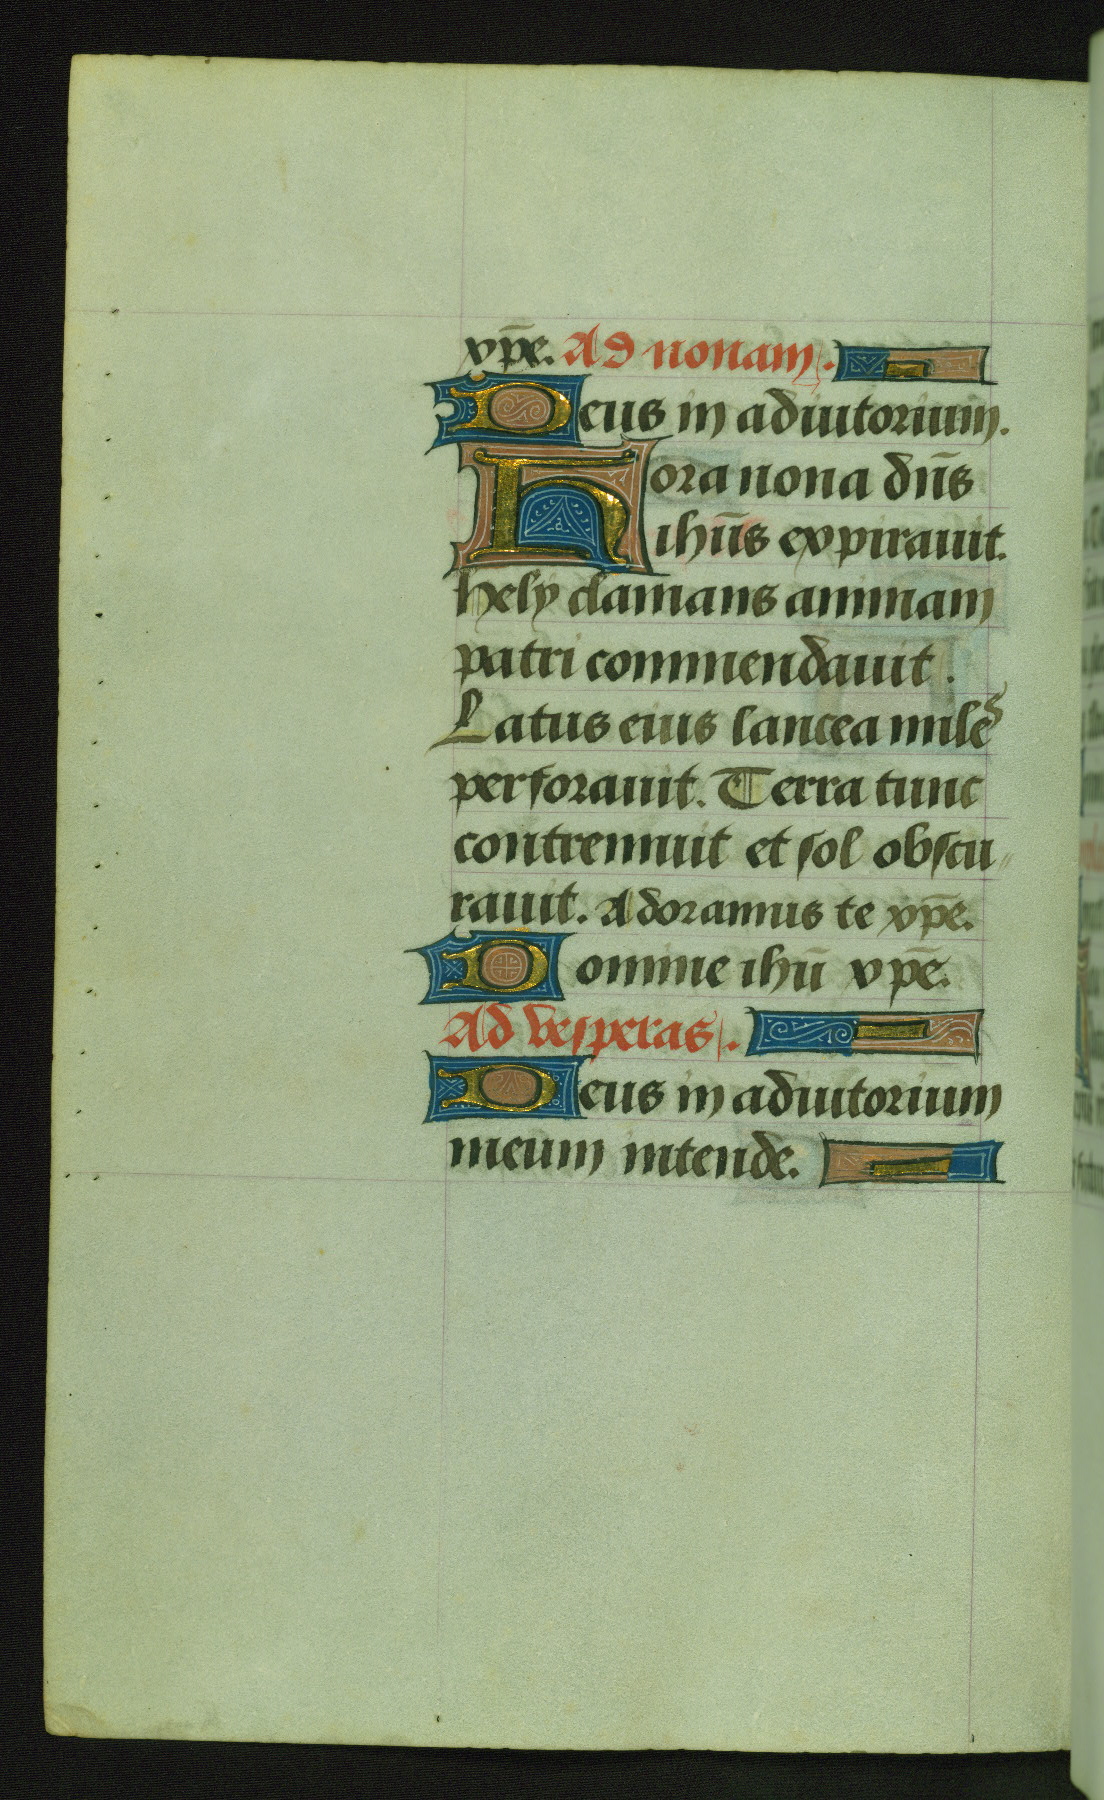 xp̄e. Ad nonam.
Deus in adiutorium.
Hora nona dn̄s
ihūs expirauit.
hely clamans animam
patri commendauit.
Latus eius lancea miles
perforauit. Terra tunc
contremuit et sol obscu〃
rauit. Adoramus te xp̄e.
Domine ihū xp̄e.
Ad vesperas.
Deus in adiutorium
meum intende.